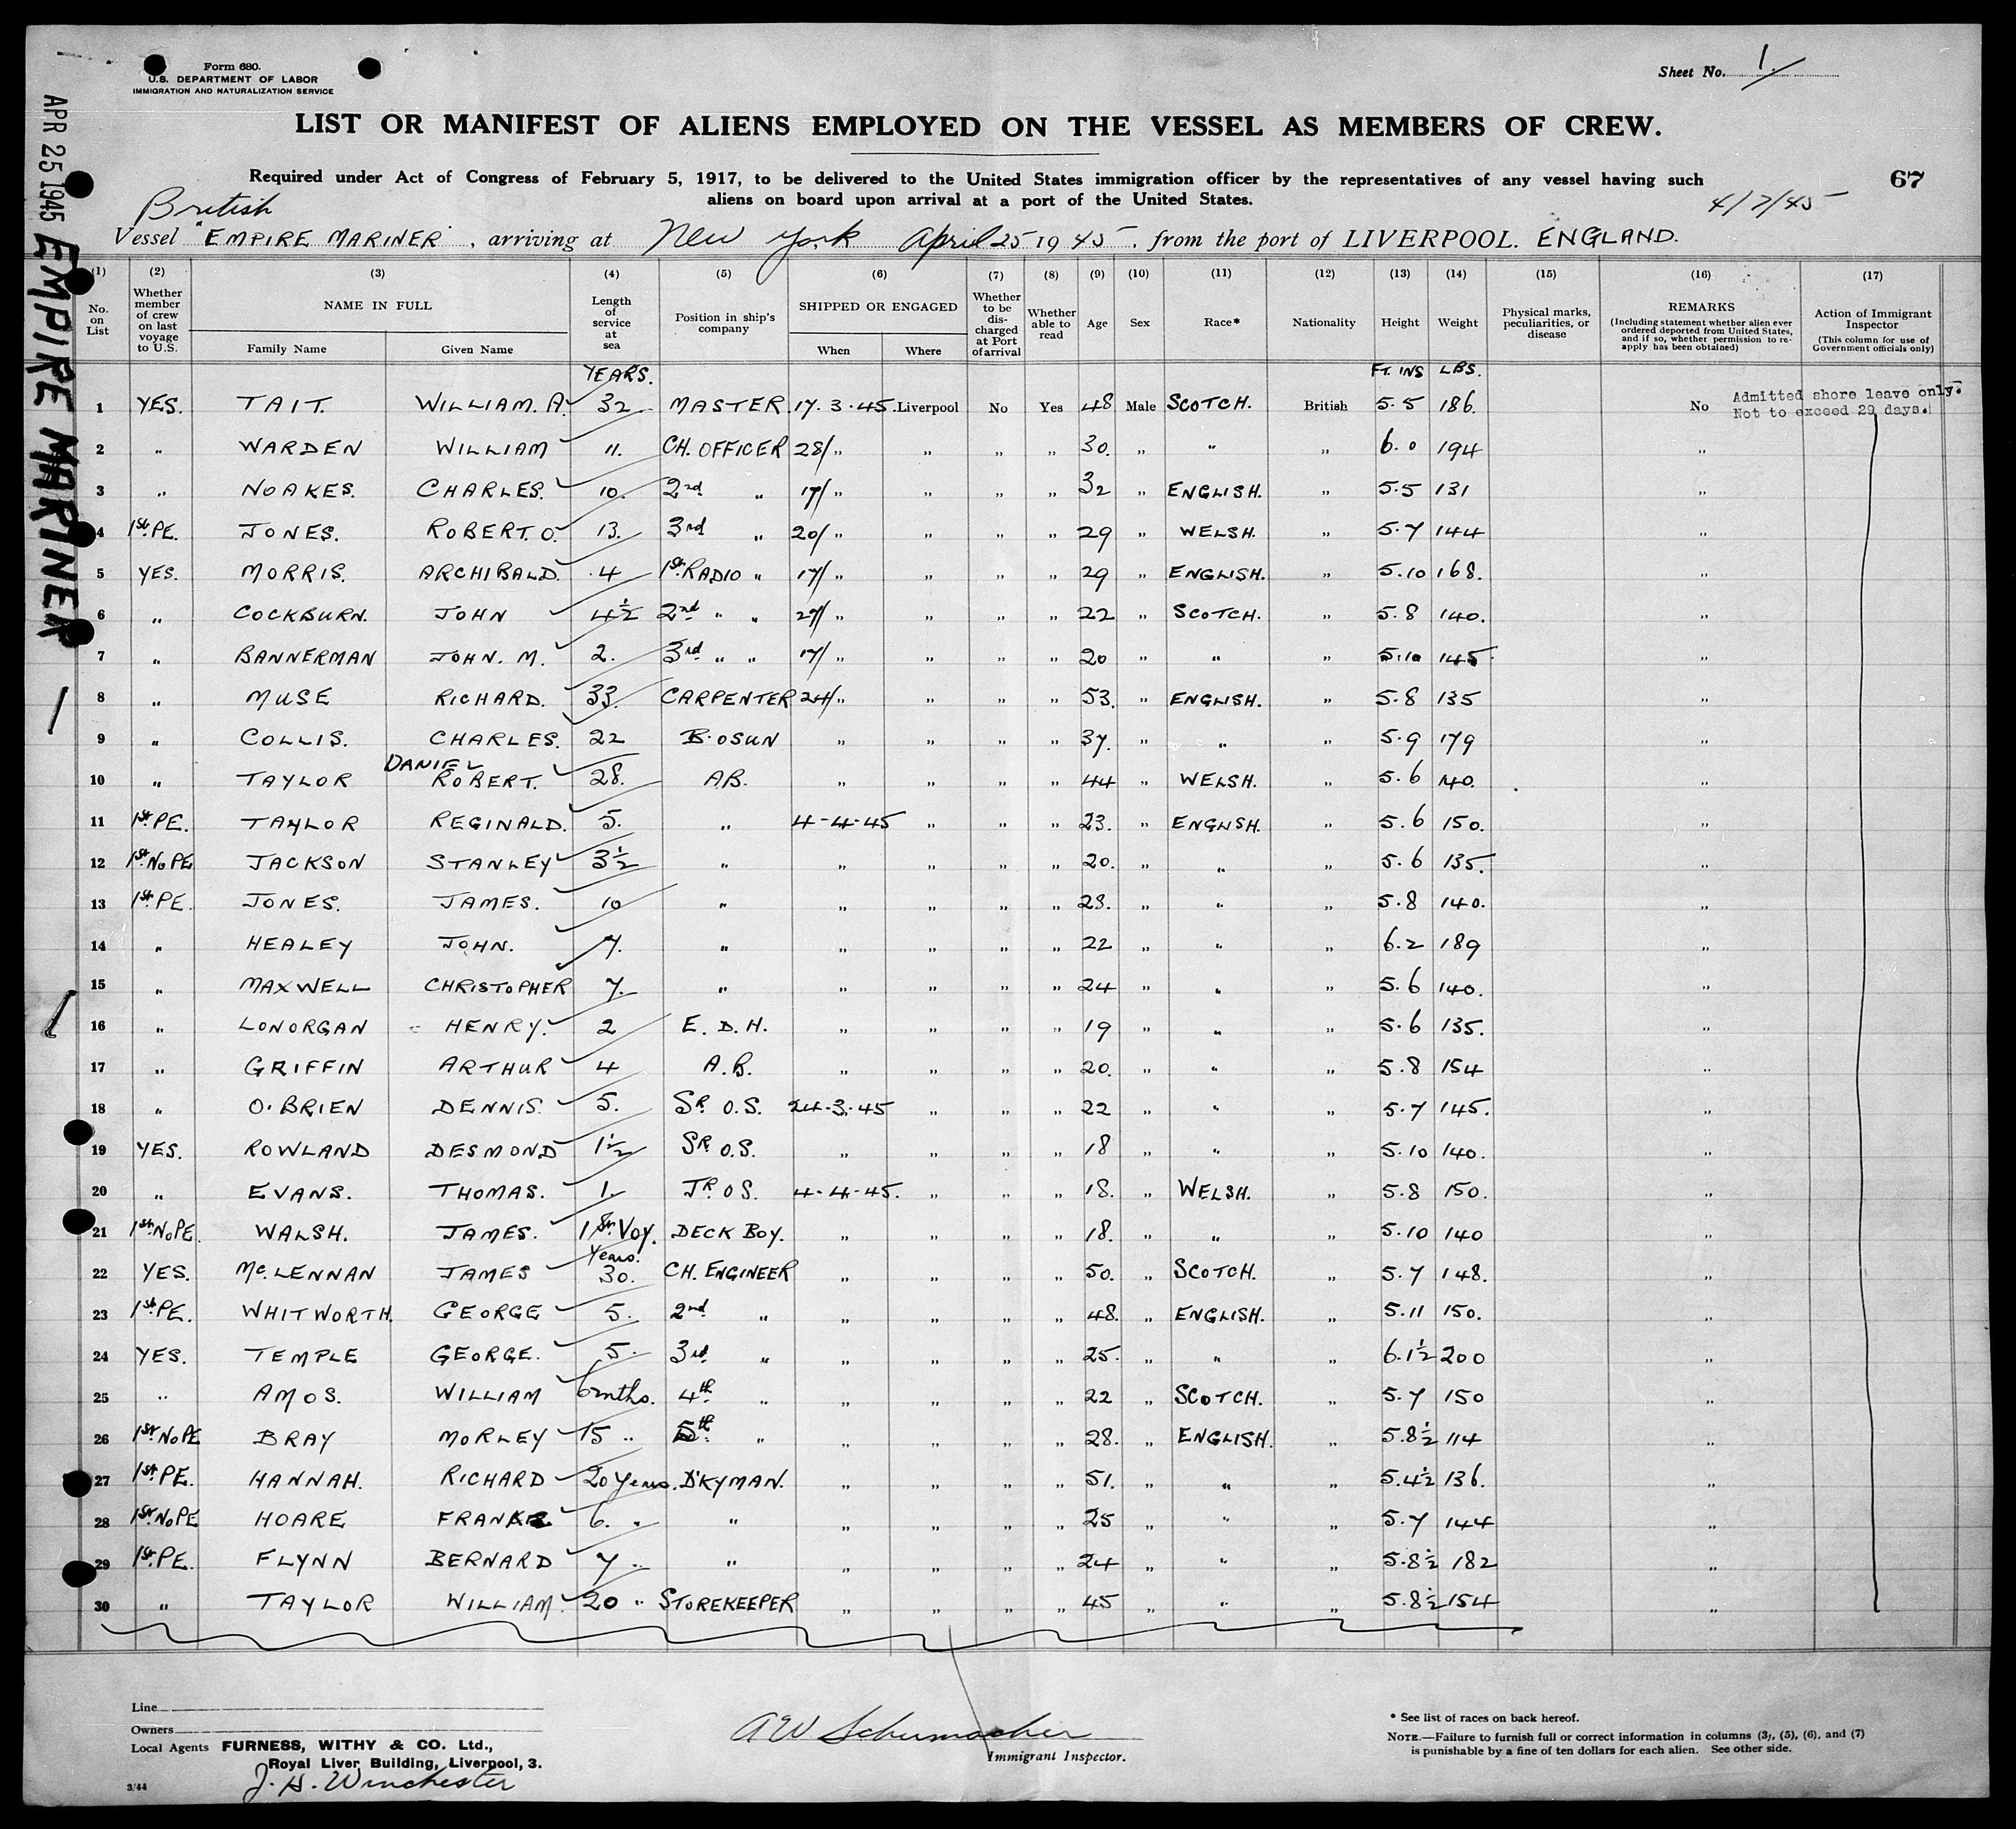 Form 680.
U.S. DEPARTMENT OF LABOR
IMMIGRATION AND NATURALIZATION SERVICE
Sheet No. 1.
LIST OR MANIFEST OF ALIENS EMPLOYED ON THE VESSEL AS MEMBERS OF CREW.
Required under Act of Congress of February 5, 1917, to be delivered to the United States immigration officer by the representatives of any vessel having such
aliens on board upon arrival at a port of the United States.
67
4/7/45
British
Vessel "EMPIRE MARINER", arriving at New York April 25 1945, from the port of LIVERPOOL. ENGLAND.
APR 25 1945 EMPIRE MARINER
(1) (2) (3) (4) (5) (6) (7) (8) (9) (10) (11) (12) (13) (14) (15) (16) (17)
No. on List
Whether member of crew on last voyage to U.S.
NAME IN FULL
Family Name Given Name
Length of service at sea
Position in ship's company
SHIPPED OR ENGAGED
When Where
Whether to be discharged at Port of arrival
Whether able to read
Age
Sex
Race*
Nationality
Height
Weight
Physical marks, peculiarities, or disease
REMARKS
(Including statement whether alien ever ordered deported from United States, and if so, whether permission to re-apply has been obtained)
Action of Immigrant Inspector
(This column for use of Government officials only)
YEARS. FT. INS LBS.
1 YES. TAIT. WILLIAM. A. 32 MASTER 17.3.45. Liverpool No Yes 48 Male SCOTCH. British 5.5 186. No Admitted shore leave only.
Not to exceed 29 days.
2 " WARDEN WILLIAM 11. CH. OFFICER 28/ " " " " 30. " " " 6.0 194 "
3 " NOAKES. CHARLES. 10. 2nd " 17/ " " " " 32 " ENGLISH. " 5.5 131 "
4 1st PE. JONES. ROBERT. O. 13. 3rd " 20/ " " " " 29 " WELSH. " 5.7 144 "
5 YES. MORRIS. ARCHIBALD. 4 1st RADIO " 17/ " " " " 29 " ENGLISH. " 5.10 168. "
6 " COCKBURN. JOHN 4½ 2nd " " 27/ " " " " 22 " SCOTCH. " 5.8 140. "
7 " BANNERMAN JOHN. M. 2. 3rd " " 17/ " " " " 20 " " " 5.10 145. "
8 " MUSE RICHARD. 33. CARPENTER 24/ " " " " 53. " ENGLISH. " 5.8 135 "
9 " COLLIS. CHARLES. 22 B.OSUN " " " " 37. " " " 5.9 179 "
10 " TAYLOR DANIEL ROBERT. 28. A.B. " " " " 44 " WELSH. " 5.6 140. "
11 1st PE. TAYLOR REGINALD. 5. " 4-4-45 " " " 23. " ENGLISH. " 5.6 150. "
12 1st No PE JACKSON STANLEY 3½ " " " " " 20. " " " 5.6 135. "
13 1st PE. JONES. JAMES. 10 " " " " " 28. " " " 5.8 140. "
14 " HEALEY JOHN. 7. " " " " " 22 " " " 6.2 189 "
15 " MAXWELL CHRISTOPHER 7. " " " " " 24 " " " 5.6 140. "
16 " LONORGAN HENRY. 2 E. D. H. " " " " 19 " " " 5.6 135. "
17 " GRIFFIN ARTHUR 4 A.B. " " " " 20. " " " 5.8 154 "
18 " O'BRIEN DENNIS. 5. SR. O.S. 24.3.45 " " " 22 " " " 5.7 145. "
19 YES. ROWLAND DESMOND 1½ SR O.S. " " " " 18 " " " 5.10 140. "
20 " EVANS. THOMAS. 1. JR. OS. 4-4-45. " " " 18. " WELSH. " 5.8 150. "
21 1st No PE. WALSH. JAMES. 1st Voy. DECK BOY. " " " " 18. " " " 5.10 140 "
22 YES. Mc. LENNAN JAMES Years. 30. CH. ENGINEER " " " " 50. " SCOTCH. " 5.7 148. "
23 1st PE. WHITWORTH. GEORGE 5. 2nd " " " " " 48. " ENGLISH. " 5.11 150. "
24 YES. TEMPLE GEORGE. 5. 3rd " " " " " 25. " " " 6.1½ 200 "
25 " AMOS. WILLIAM 6 mnths. 4th " " " " " 22 " SCOTCH. " 5.7 150 "
26 1st No PE BRAY MORLEY 15 " 5th " " " " " 28. " ENGLISH. " 5.8½ 114 "
27 1st PE. HANNAH. RICHARD 20 years. D'KYMAN. " " " " 51. " " " 5.4½ 136. "
28 1st No PE HOARE FRANK 6. " " " " " " 25 " " " 5.7 144 "
29 1st PE. FLYNN BERNARD 7 " " " " " " 24 " " " 5.8½ 182 "
30 " TAYLOR WILLIAM. 20 " STOREKEEPER " " " " 45 " " " 5.8½ 154 "
Line
Owners
Local Agents FURNESS, WITHY & CO. Ltd.,
Royal Liver Building, Liverpool, 3.
J. H. Winchester
3/44
A W Schumacher
Immigrant Inspector.
* See list of races on back hereof.
NOTE.—Failure to furnish full or correct information in columns (3), (5), (6), and (7)
is punishable by a fine of ten dollars for each alien. See other side.